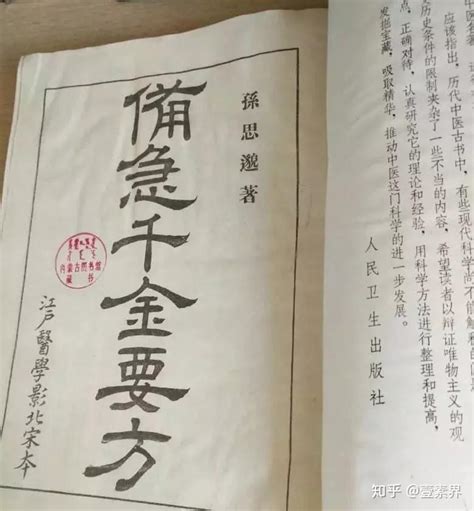 应该指出，历代中医古书中，有些现代科学尚不能解
及历史条件的限制夹杂了一些不当的内容，希望读者以辩证唯物主义的观
点，正确对待，认真研究它的理论和经验，用科学方法进行整理和提高，
发掘宝藏，吸取精华，推动中医这门科学的进一步发展。
人民卫生出版社
孫思邈著
備急千金要方
江戶醫學影北宋本
内蒙古图书馆
藏
知乎 @壹素界